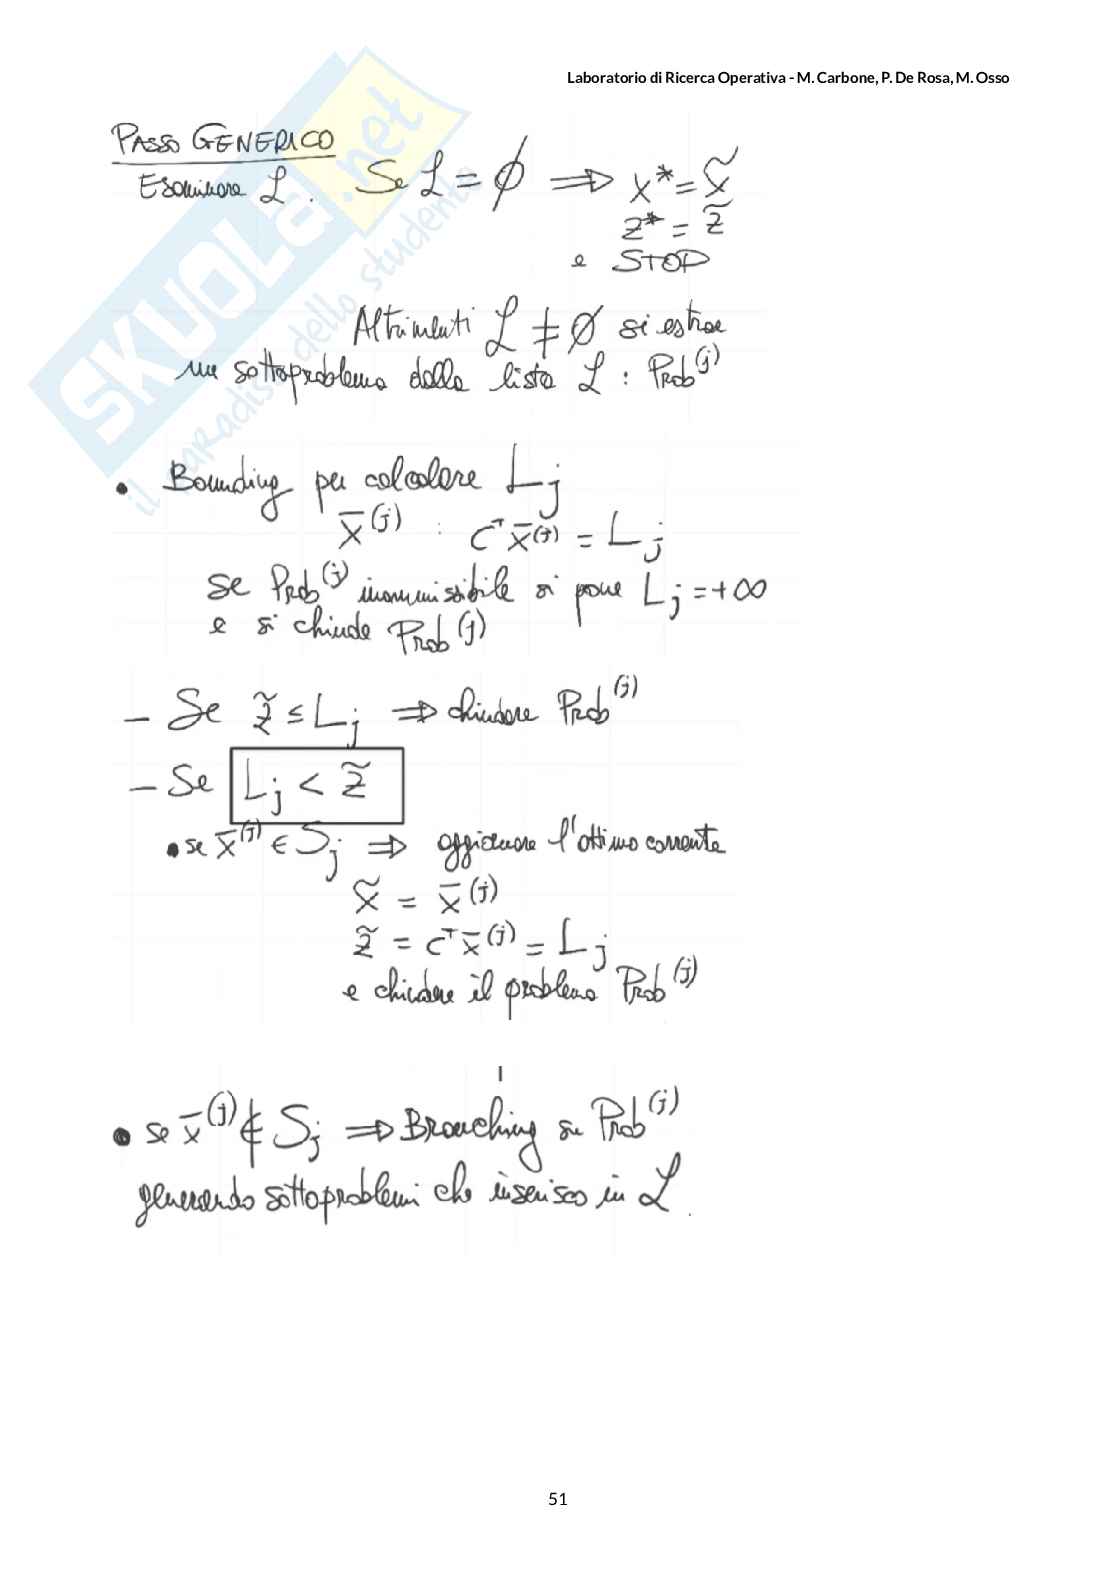 Laboratorio di Ricerca Operativa - M. Carbone, P. De Rosa, M. Osso
SKUOLA.net
il paradiso dello studente
PASSO GENERICO
Esaminare ℒ. Se ℒ = ∅ ⟹ x* = x̃
z* = z̃
e STOP
Altrimenti ℒ ≠ ∅ si estrae
un sottoproblema dalla lista ℒ : Prob^(j)
• Bounding per calcolare L_j
x̄^(j) : c^T x̄^(j) = L_j
se Prob^(j) inammissibile si pone L_j = +∞
e si chiude Prob^(j)
- Se z̃ ≤ L_j ⟹ chiudere Prob^(j)
- Se L_j < z̃
• se x̄^(j) ∈ S_j ⟹ aggiornare l'ottimo corrente
x̃ = x̄^(j)
z̃ = c^T x̄^(j) = L_j
e chiudere il problema Prob^(j)
• se x̄^(j) ∉ S_j ⟹ Branching su Prob^(j)
generando sottoproblemi che inserisco in ℒ.
51